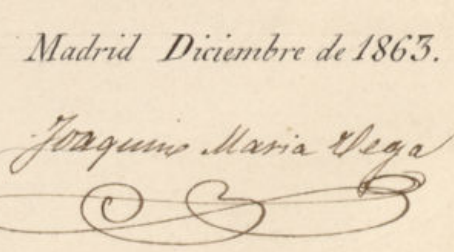 Madrid Diciembre de 1863.
Joaquin Maria Vega